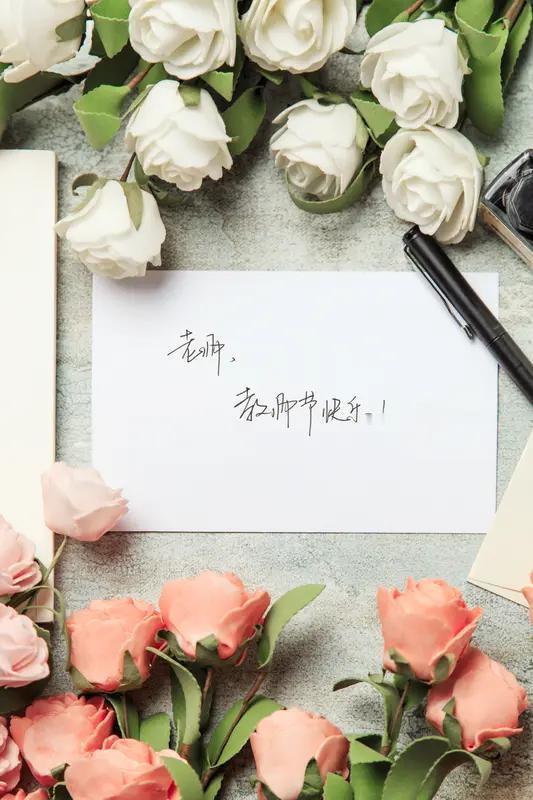 老师，
教师节快乐！